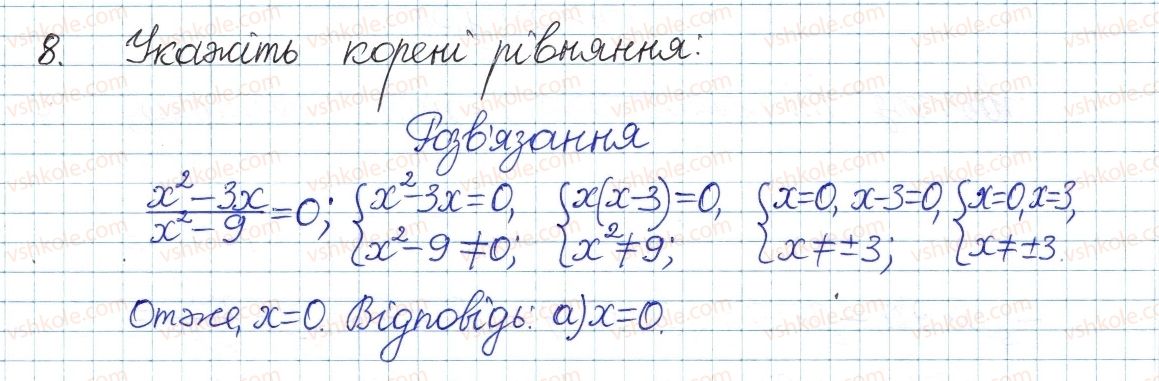 8. Укажіть корені рівняння:
Розв'язання
(x² - 3x)/(x² - 9) = 0; {x² - 3x = 0, x² - 9 ≠ 0; {x(x - 3) = 0, x² ≠ 9; {x = 0, x - 3 = 0, x ≠ ±3; {x = 0, x = 3, x ≠ ±3.
Отже, x = 0. Відповідь: а) x = 0.